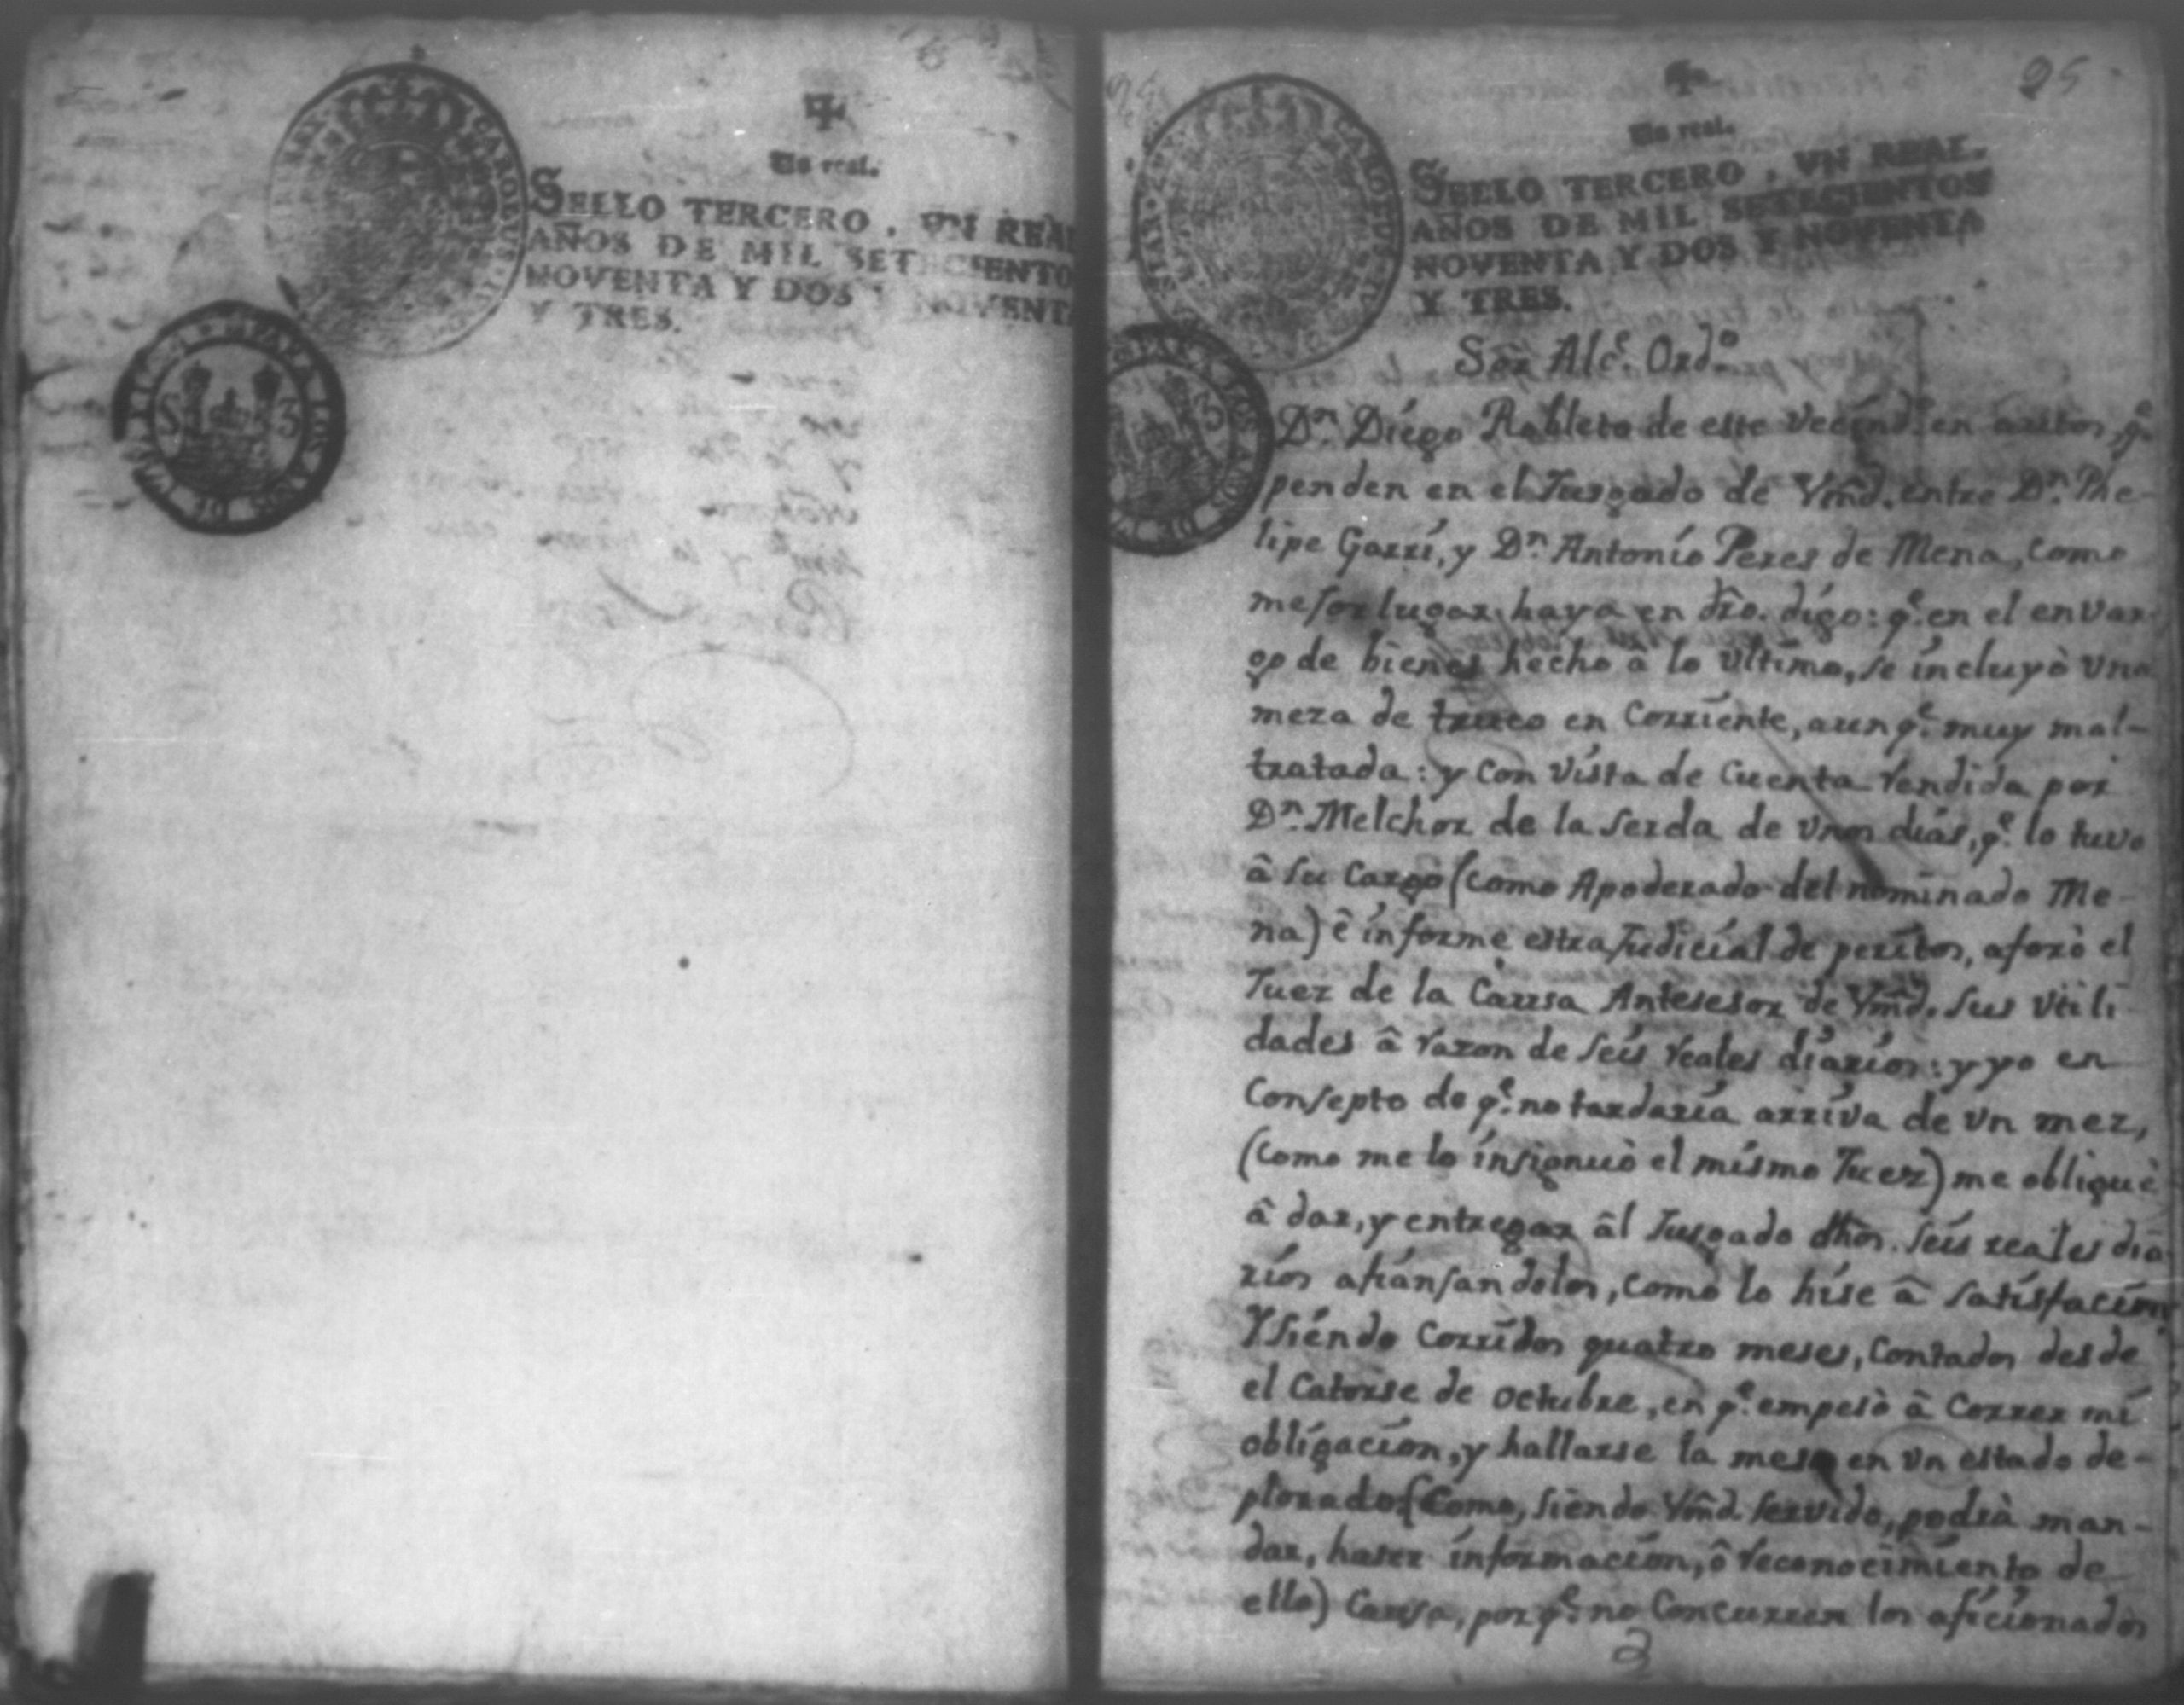 Un real.
SELLO TERCERO, VN REAL
AÑOS DE MIL SETECIENTOS
NOVENTA Y DOS Y NOVENTA
Y TRES.
95
Un real.
SELLO TERCERO, VN REAL.
AÑOS DE MIL SETECIENTOS
NOVENTA Y DOS Y NOVENTA
Y TRES.
Sõr Alc.e Ord.o
D.n Diégo Robleto de este vecind.o en autos, q.e
penden en el Jusgado de Vm̃d. entre D.n Phe-
lipe Garrí, y D.n Antonío Peres de Mena, como
mejor lugar haya en dr̃o. dígo: q.e en el envar-
go de bienes hecho â lo ultímo, se íncluyò vna
meza de truco en Corríente, aunq.e muy mal-
tratada: y con vísta de Cuenta rendida por
D.n Melchor de la Serda de vnos días, q.e lo tuvo
â su Cargo (como Apoderado del nominado Me-
na) ê ínforme estraJudicíal de perítos, aforò el
Juez de la Causa Antesesor de Vm̃d. sus vtili
dades â razon de seís reales díaríos: y yo en
Consepto de q.e no tardaría arríva de vn mez,
(como me lo ínsignuò el mísmo Juez) me obliguè
â dar, y entregar âl Jusgado dhõs. seís reales día
ríos afíansandolos, como lo híse â satísfacíon,
Y síendo Corrídos quatro meses, Contados desde
el Catorse de octubre, en q.e empesò â Correr mí
oblígacíon, y hallarse la mesa en vn estado de-
plorado (Como, síendo Vm̃d. servído, podrà man-
dar, haser ínformacíon, ô reconocímíento de
ello) Causa, porq.e no Concurren los afícíonados